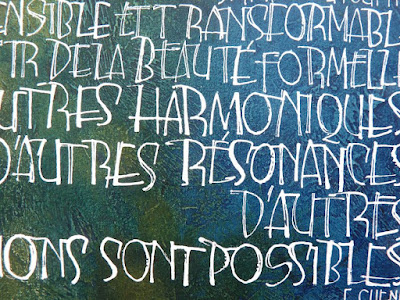 ENSIBLE ET TRANSFORMABL
TIR DE LA BEAUTÉ FORMELLE
UTRES HARMONIQUES
D'AUTRES RÉSONANCES
D'AUTRES
IONS SONT POSSIBLES
F. CHEN